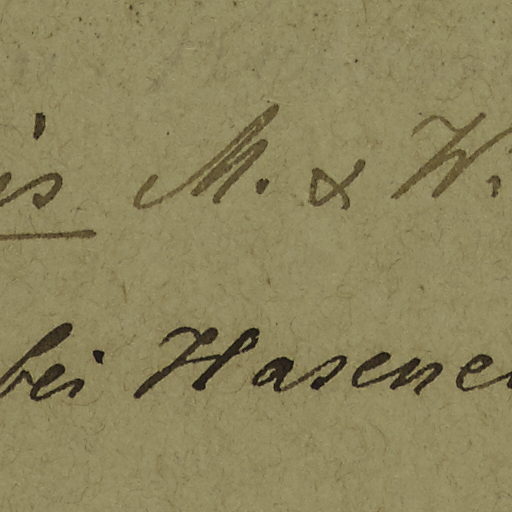 is M. & W.
bei Hasene